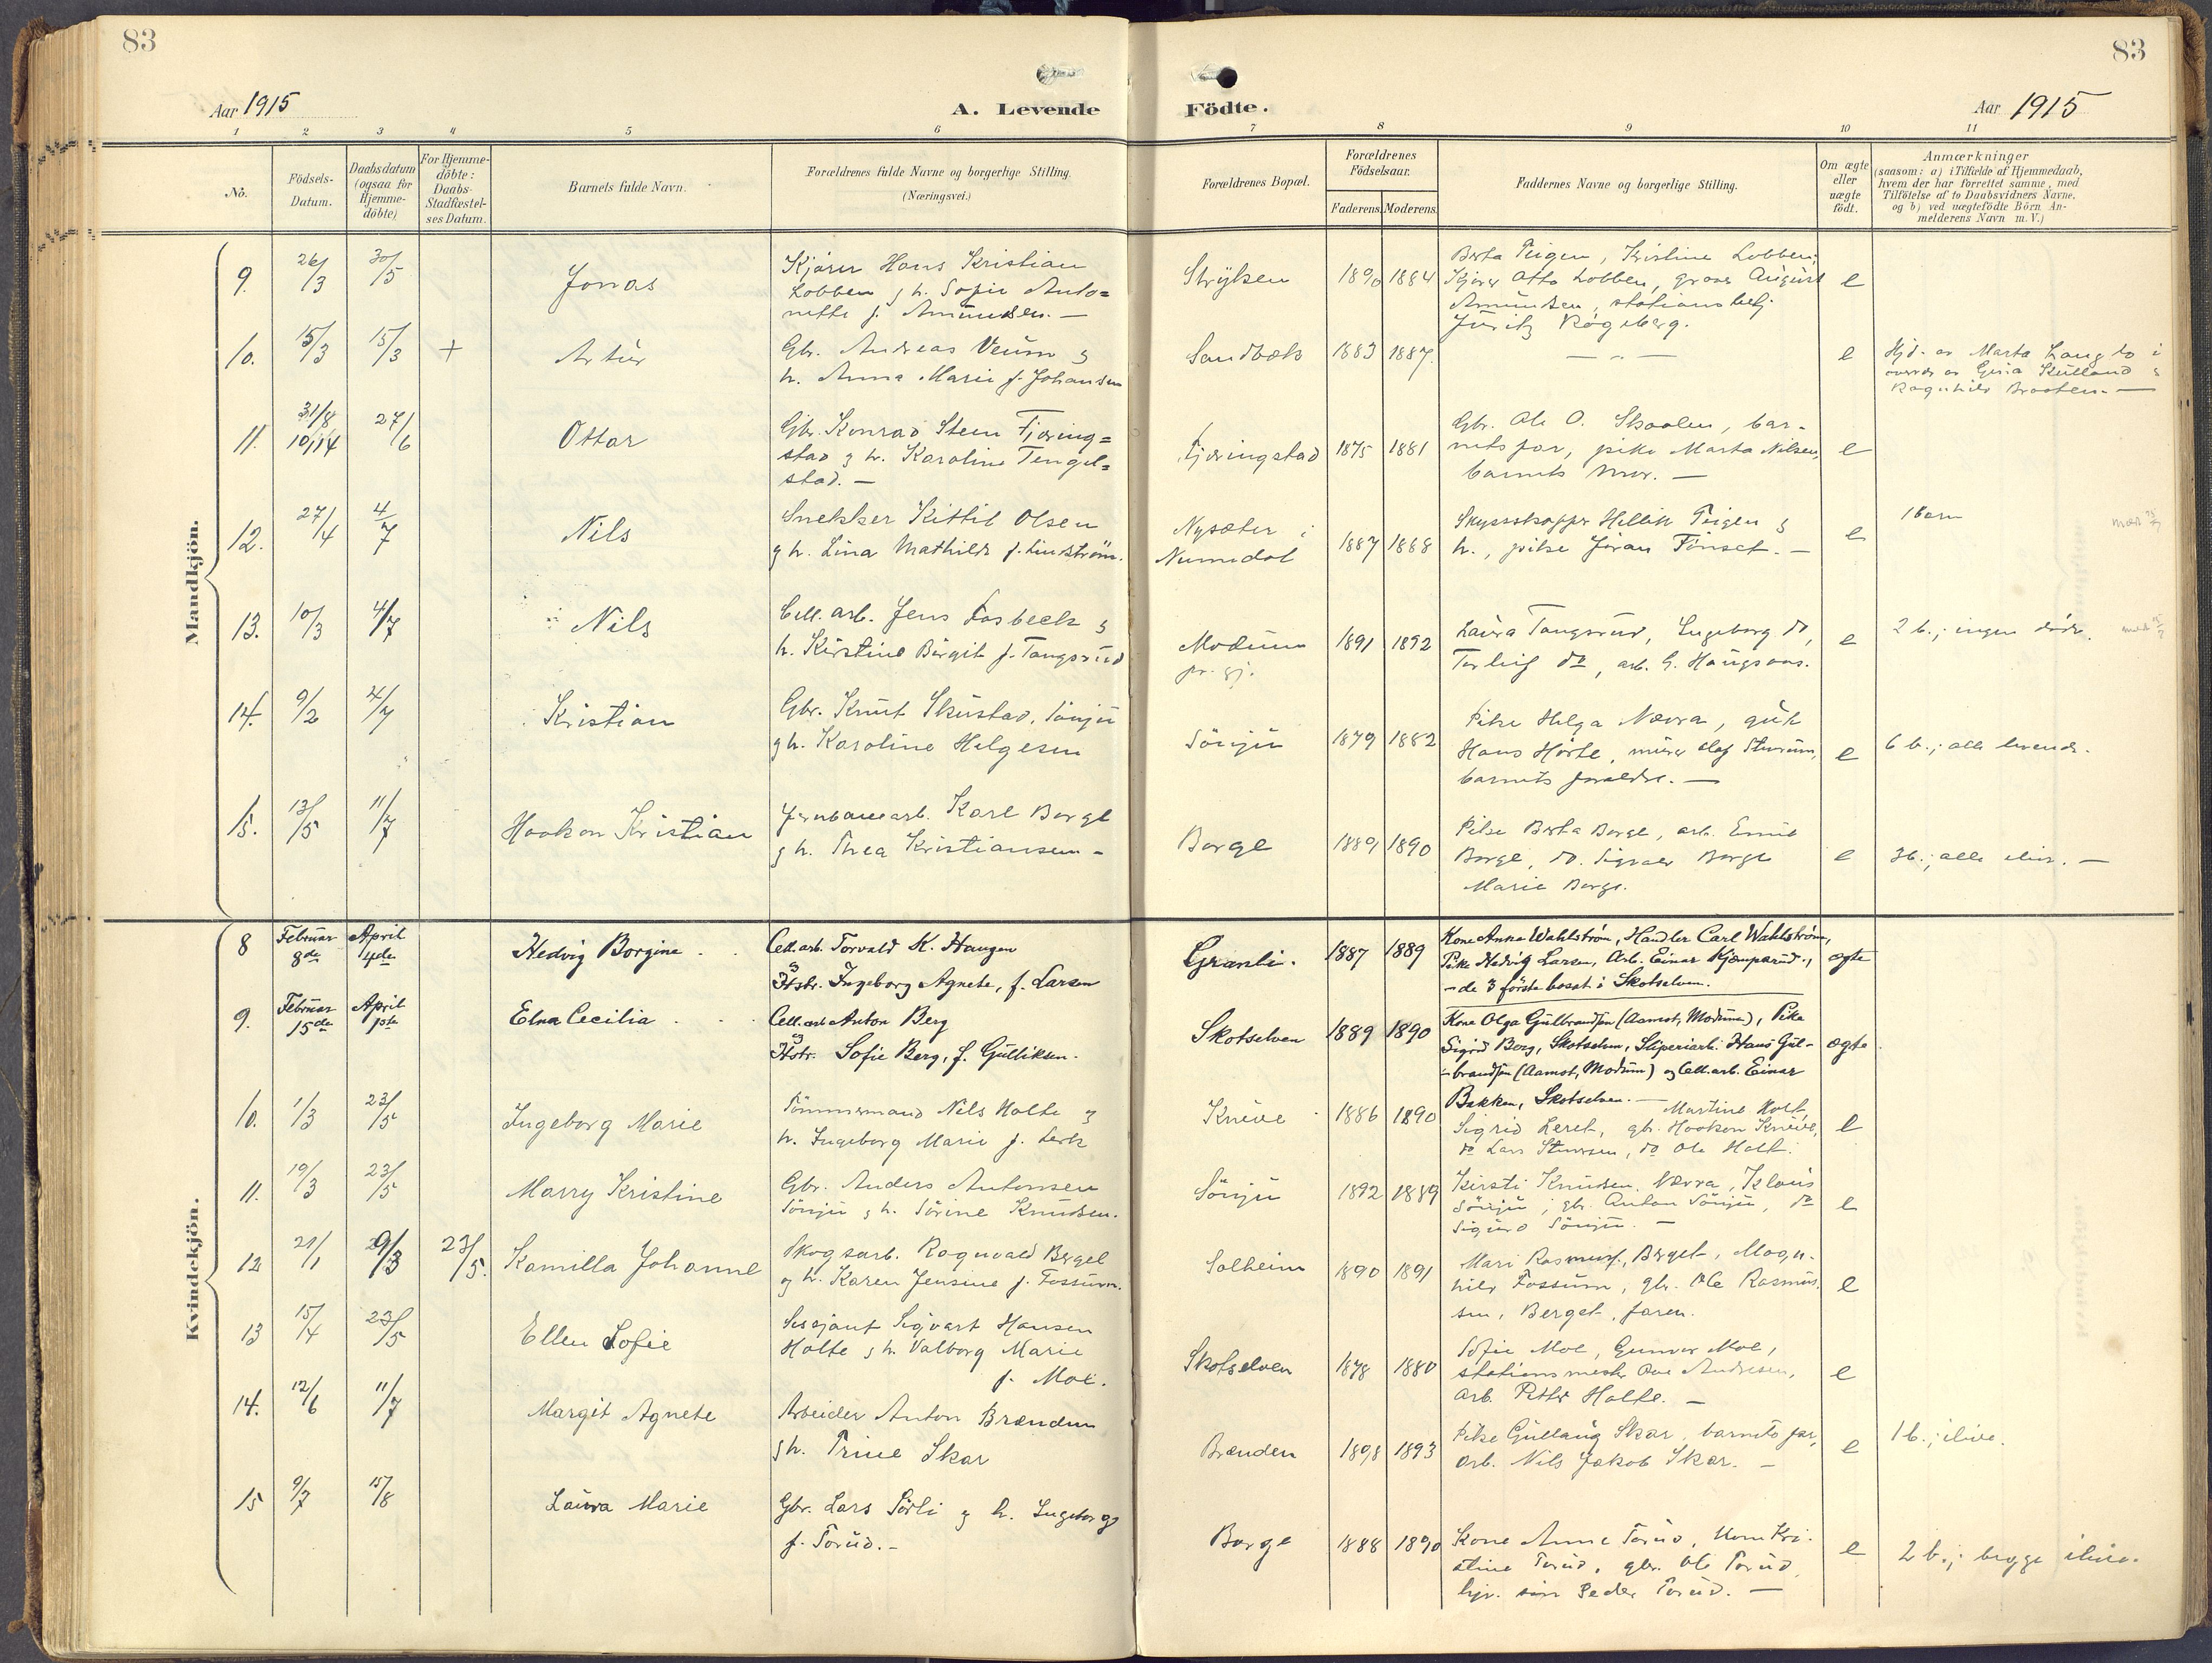 83
83
Aar 1915
A. Levende
Födte.
Aar 1915
1 2 3 4 5 6 7 8 9 10 11
No.
Födsels-
Datum.
Daabsdatum
(ogsaa for
Hjemme-
döbte)
For Hjemme-
döbte:
Daabs-
Stadfæstel-
ses Datum.
Barnets fulde Navn.
Forældrenes fulde Navne og borgerlige Stilling.
(Næringsvei.)
Forældrenes Bopæl.
Forældrenes
Födselsaar.
Faderens. Moderens.
Faddernes Navne og borgerlige Stilling.
Om ægte
eller
uægte
födt.
Anmærkninger
(saasom: a) i Tilfælde af Hjemmedaab,
hvem der har forrettet samme, med
Tilföielse af to Daabsvidners Navne,
og b) ved uægtefödte Börn An-
melderens Navn m. V.)
Mandkjön.
9. 26/3 30/5
Jonas
Kjører Hans Kristian
Lobben g h. Sofie Anto=
nette f. Amundsen. —
Stryken 1890 1884
Berta Teigen, Kristine Lobben,
Kjører Otto Lobben, graver August
Amundsen, stationsbetj.
Rogeberg.
e
10. 15/3 15/3 +
Artur
Gbr. Andreas Veum g
h. Anna Marie f. Johansen
Sandbæk 1883 1887.
— " —
e
Hjd. av Marta
Ragnhild Braaten. —
11. 31/8 10/14 27/6
Ottar
Gbr. Konrad Steen Fjæring=
stad g h. Karoline Tengel=
stad. —
Fjæringstad 1875 1881
Gbr. Ole O. Skaalen, bar-
nets far, pike Marta Nilsen,
barnets mor. —
e
12. 27/4 4/7
Nils
Snekker Kittil Olsen
g h. Lina Mathilde f. Lindstrøm.
Nysæter i
Numedal
1887 1888
Skyssskaffer Hellik Teigen g
h., pike Jøran Tønset. —
e
1 barn
13. 10/3 4/7
Nils
Cell. arb. Jens Fosbeck g
h. Kirstine Birgit f. Tangsrud
Modum
pr. gj.
1891 1892
Laura Tangsrud, Ingeborg do,
Torleif do, arb. G. Haugsaas.
e
2 b.; ingen døde.
14. 9/2 4/7
Kristian
Gbr. Knut Skustad, Sönju
g h. Karoline Helgesen
Sönju 1879 1882
Pike Helga Nævra, gbr.
Hans Hörte, murer Olaf
barnets forældre. —
e
6 b.; alle levende.
15. 13/5 11/7
Haakon Kristian
Jernbanearb. Karl Borge
g h. Thea Kristiansen —
Borge 1889 1890
Pike Berta Borge, arb. Emil
Borge, do. Sigvald Borge
Marie Borge.
e
3 b.; alle ilive. —
Kvindekjön.
8 Februar 8de April 4de
Hedvig Borgine
Cell. arb. Torvald K. Haugen
g
Hstr. Ingeborg Agnete, f. Larsen
Granli. 1887 1889
Kone Anna Wahlstrøm, Handler Carl Wahlstrøm,
Pike Hedvig Larsen, Arb. Einar Kjemperud.,
- de 3 første bosat i Skotselven.
ægte
9. Februar 15de April 1ste
Elna Cecilia
Cell. arb Anton Berg
og
Hstr. Sofie Berg, f. Gulliksen.
Skotselven 1889 1890
Kone Olga Gulbrandsen (Aamot, Modum), Pike
Sigrid Berg, Skotselven, Sliperiarb. Hans Gul-
-brandsen (Aamot, Modum) og Cell.arb. Einar
Bakken, Skotselven. —
ægte
10. 1/3 23/5
Ingeborg Marie
Tömmermand Nils Holte g
h. Ingeborg Marie f. Lerk
Knive 1886 1890
Martine Holt,
Sigrid Lerek, gb. Haakon Knive,
do Lars Steensen, do Ole Holt.
e
11. 19/3 23/5
Marry Kristine
Gbr. Anders Antonsen
Sönju g h. Sörine Knudsen.
Sönju 1892 1889
Kirsti Knudsen Nævra, Klaus
Sönju, gbr. Anton Sönju, do
Sigurd Sönju. —
e
12 21/1 9/3 23/5.
Kamilla Johanne
Skogsarb. Ragnvald Berget
og h. Karen Jensine f. Fossum.
Solheim 1890 1891
Mari Rasmus., Berget, Magn-
hild Fossum, gbr. Ole Rasmus-
sen, Berget, faren.
e
13 15/4 23/5
Ellen Sofie
Sersjant Sigvart Hansen
Holte g h. Valborg Marie
f. Moe.
Skotselven 1878 1880
Sofie Moe, Gunvor Moe,
stationsmester Ove Andresen,
arb. Petter Holte. —
e
14. 12/6 11/7
Margit Agnete
Arbeider Anton Brænden
g h. Trine Skar
Brænden 1898 1893
Pike Gullaug Skar, barnets far,
arb. Nils Jakob Skar. —
e
1 b.; ilive.
15 9/7 15/8
Laura Marie
Gbr. Lars Sörli g h. Ingeborg
f. Torud. —
Borge 1888 1890
Kone Anne Torud, Kri-
stine Torud, gbr. Ole Torud,
hjv. søn Peder Torud. —
e
2 b.; begge ilive.